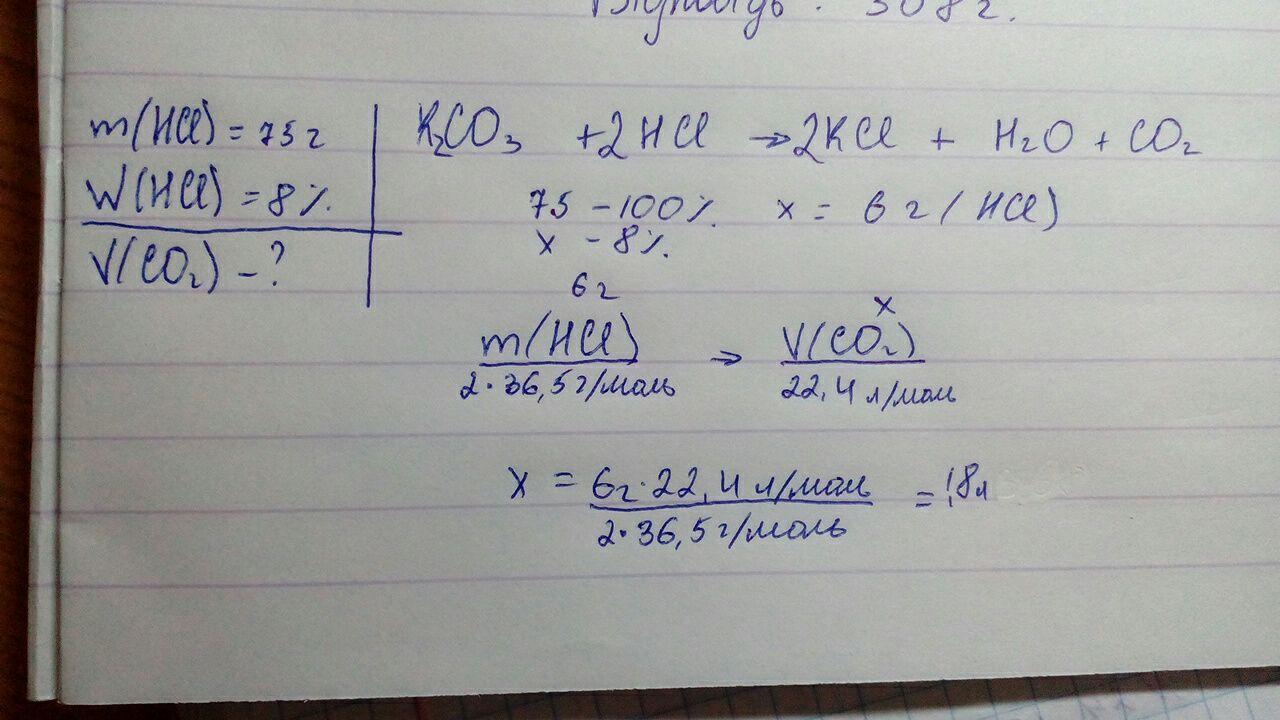 308 г.
m(HCl) = 75 г
W(HCl) = 8%
V(CO₂) - ?
K₂CO₃ + 2HCl → 2KCl + H₂O + CO₂
75 - 100% x = 6 г (HCl)
x - 8%
6 г x
m(HCl) → V(CO₂)
2·36,5 г/моль 22,4 л/моль
x = 6г·22,4 л/моль = 1,8 л
2·36,5 г/моль